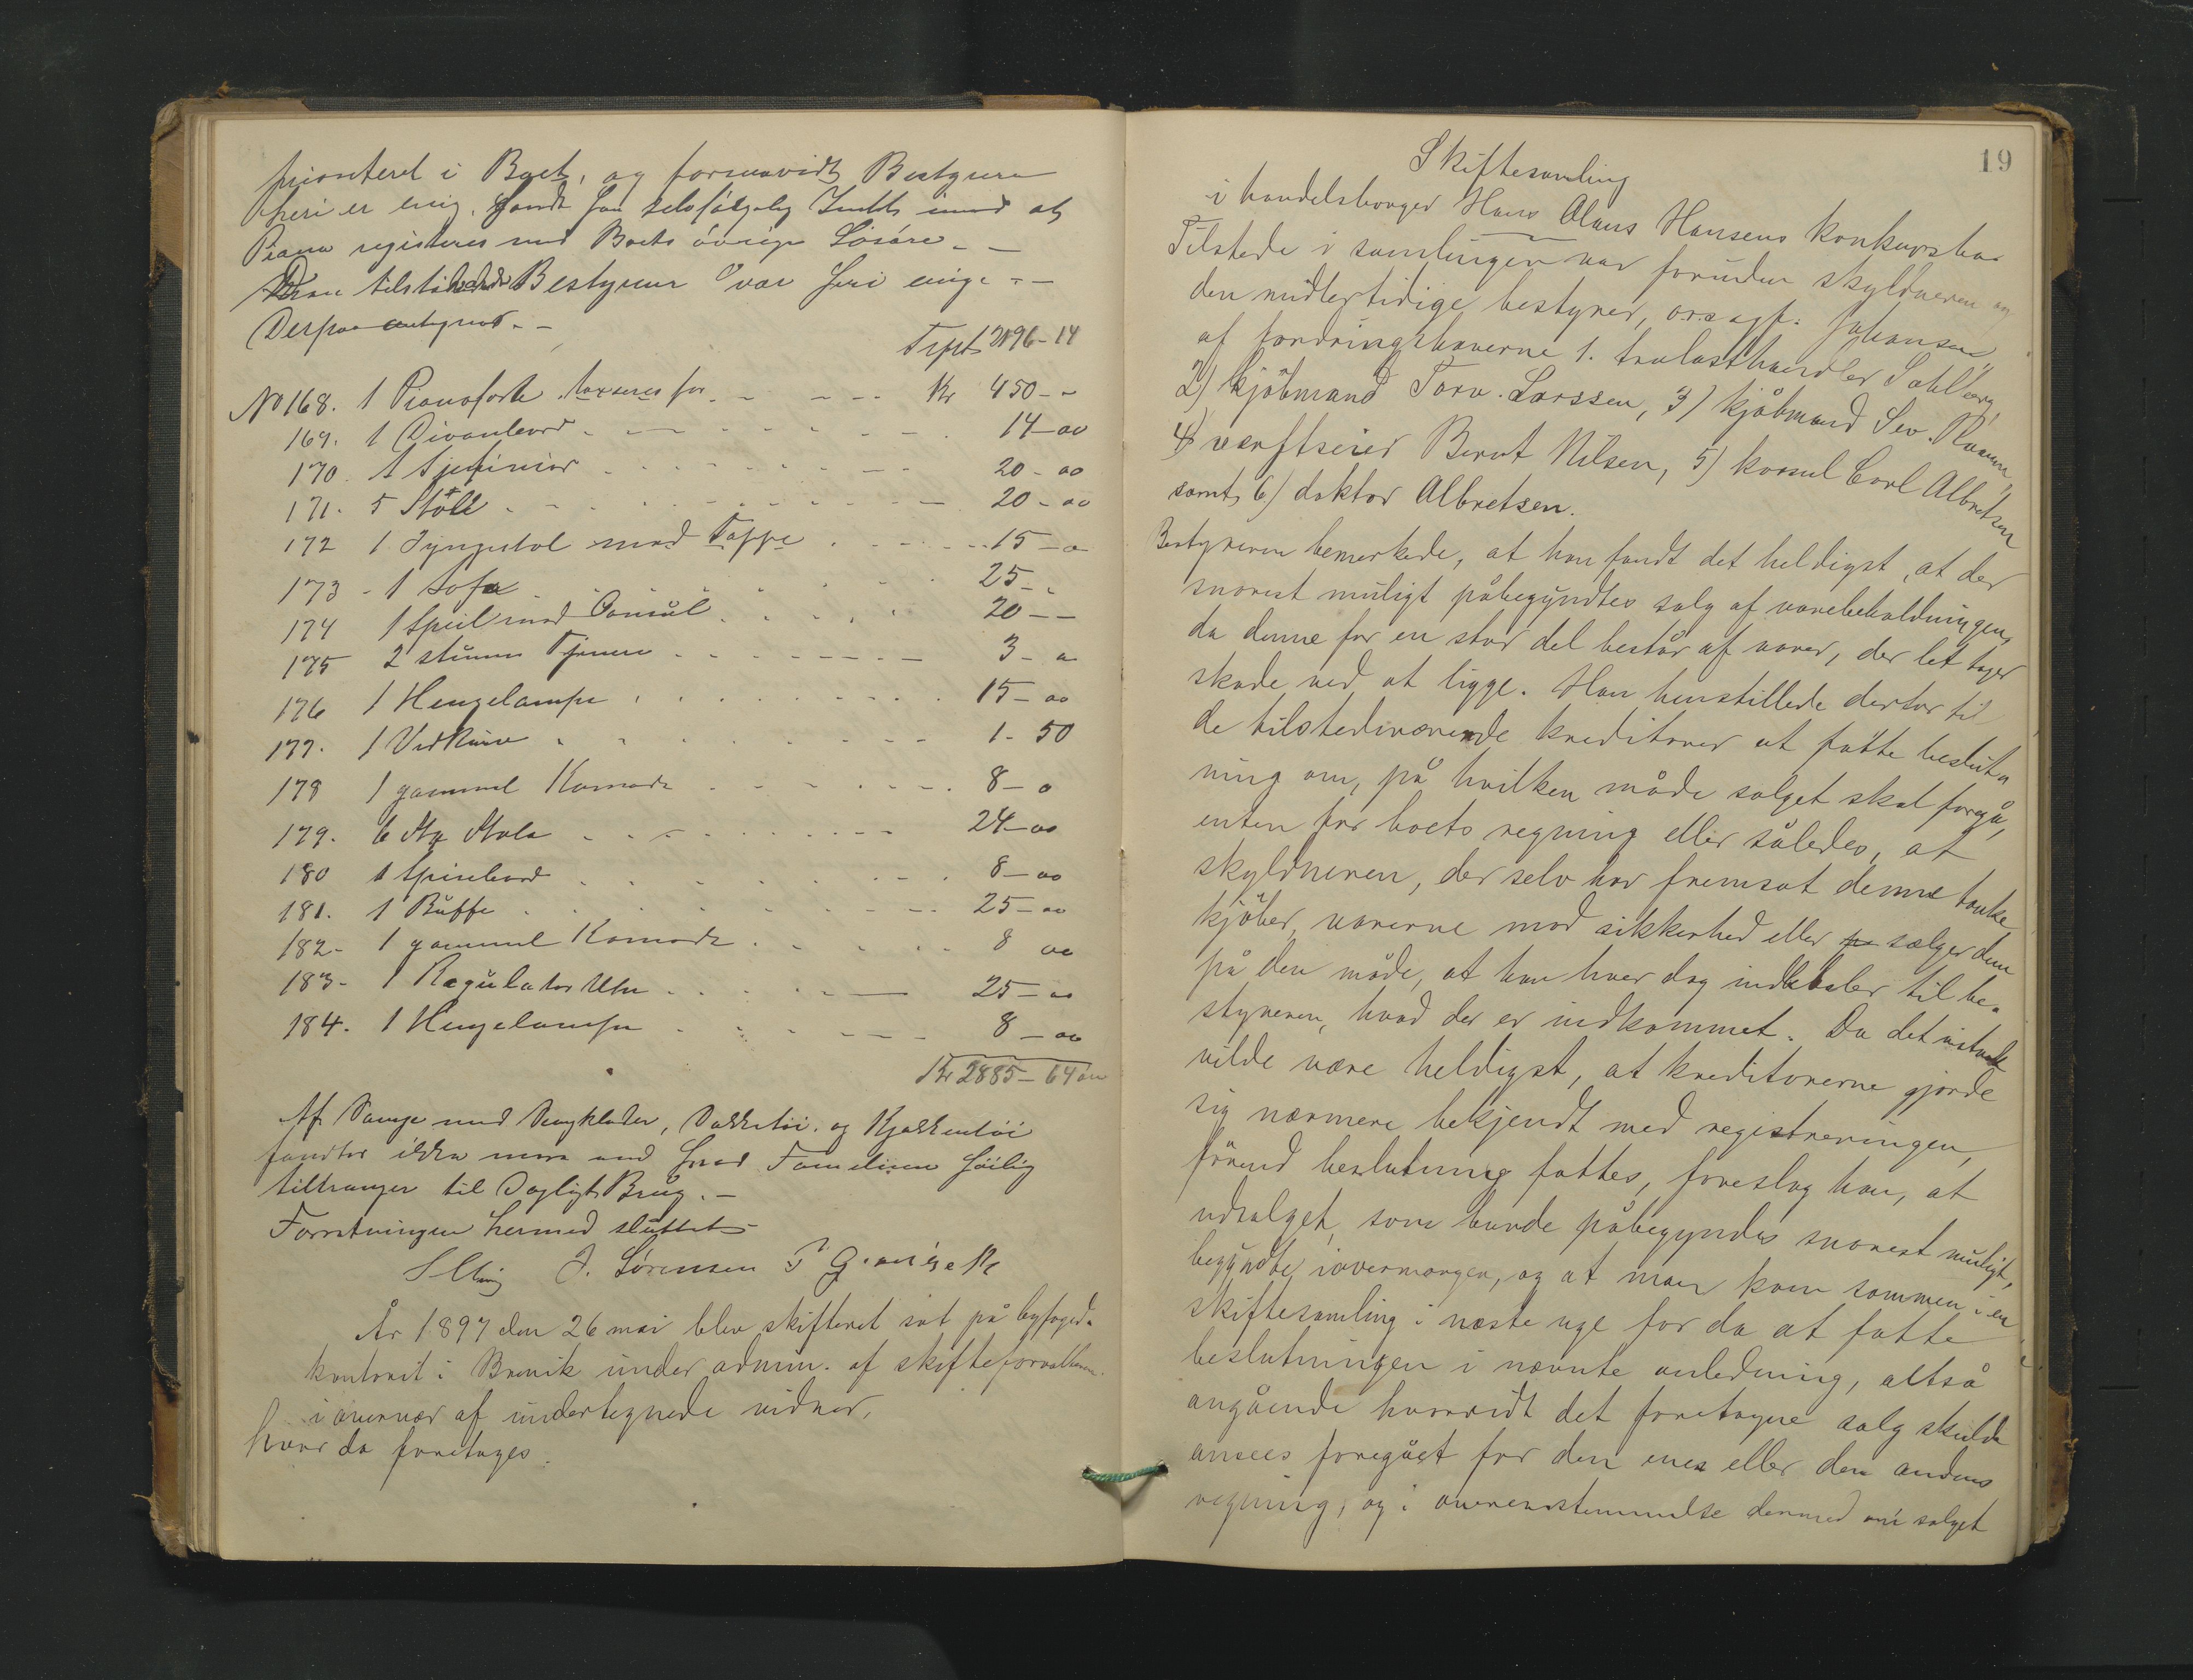 prioriteret i Boet, og forsaavidt Bestyreren
heri er enig, fandt han selvfølgelig Intet imod at
Piano registeres med Boets øvrige Løsøre. –
Den tilstædende Bestyrer var heri enig. –
Derpaa antegnes. –
Trpt 2196–14
No 168. 1 Pianoforte taxseres for Kr 450 –
169. 1 Divanbord 14–00
170. 1 Chifinier 20–00
171. 5 Stole 20–00
172 1 Gyngestol med Tæppe 15–0
173 – 1 Sofa 25 –
174 1 Speil med Consùl 20 – –
175 2 stumme Tjenere 3 –
176 1 Hengelampe 15–00
177. 1 Vedkurv 1–50
178 1 gammel Komode 8–0
179. 6 Stk Stole 24–00
180 1 Spisebord 8–00
181. 1 Buffe 25–00
182– 1 gammel Komode 8 00
183– 1 Regulator Uhr 25–00
184. 1 Hengelampe 8–00
Kr 2885–64 øre
Af Senge med Sengklæder, Dækketøi og Kjøkkentøi
fandtes ikke mere end hvad Familien høilig
tiltrænger til Dagligt Brug. –
Forretningen hermed sluttet
J. Sørensen
År 1897 den 26 mai blev skifteret sat på byfoged-
kontoret i Brevik under admin. af skifteforvalteren
i overvær af undertegnede vidner,
hvor da foretoges.
19
Skiftesamling
i handelsborger Hans Olaus Hansens konkursbo
Tilstede i samlingen var foruden skyldneren og
den midlertidige bestyrer, o.r.sagf. Johansen
af fordringshaverne 1. trælasthandler Dahlberg,
2) kjöbmand Torv. Larssen, 3) kjöbmand Sev.
4) værftseier Bernt Nilsen, 5) konsul Carl Albretsen
samt 6) doktor Albretsen.
Bestyreren bemerkede, at han fandt det heldigst, at der
snarest muligt påbegyndtes salg af varebeholdningen,
da denne for en stor del består af varer, der let tager
skade ved at ligge. Han henstillede derfor til
de tilstedeværende kreditorer at fatte beslut-
ning om, på hvilken måde salget skal foregå,
enten for boets regning eller således, at
skyldneren, der selv har fremsat denne tanke
kjöber varerne mod sikkerhed eller sælger dem
på den måde, at han hver dag indbetaler til be-
styreren, hvad der er indkommet. Da det
vilde være heldigst, at kreditorerne gjorde
sig nærmere bekjendt med registreringen,
förend beslutning fattes, foreslog han, at
udsalget, som burde påbegyndes snarest muligt,
begyndte iovermorgen, og at man kom sammen i en
skiftesamling i næste uge for da at fatte
beslutningen i nævnte anledning, altså
angående hvorvidt det foretagne salg skulde
ansees foregået for den enes eller den andens
regning, og i overensstemmelse dermed om salget